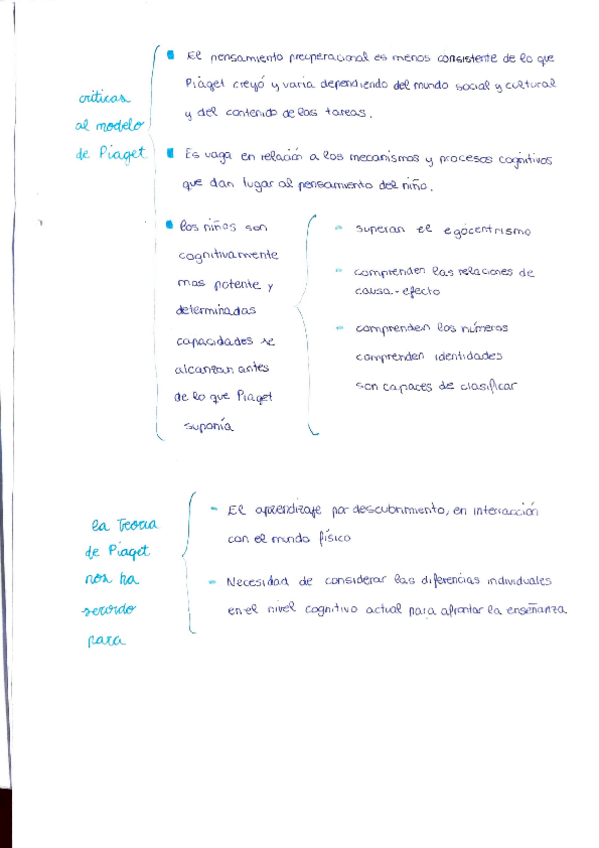 críticas
al modelo
de Piaget
El pensamiento preoperacional es menos consistente de lo que
Piaget creyó y varia dependiendo del mundo social y cultural
y del contenido de las tareas.
Es vaga en relación a los mecanismos y procesos cognitivos
que dan lugar al pensamiento del niño.
los niños son
cognitivamente
mas potente y
determinadas
capacidades se
alcanzan antes
de lo que Piaget
suponía
- superan el egocentrismo
- comprenden las relaciones de
causa-efecto
- comprenden los números
comprenden identidades
son capaces de clasificar
la Teoria
de Piaget
nos ha
servido
para
- El aprendizaje por descubrimiento, en interacción
con el mundo físico
- Necesidad de considerar las diferencias individuales
en el nivel cognitivo actual para afrontar la enseñanza